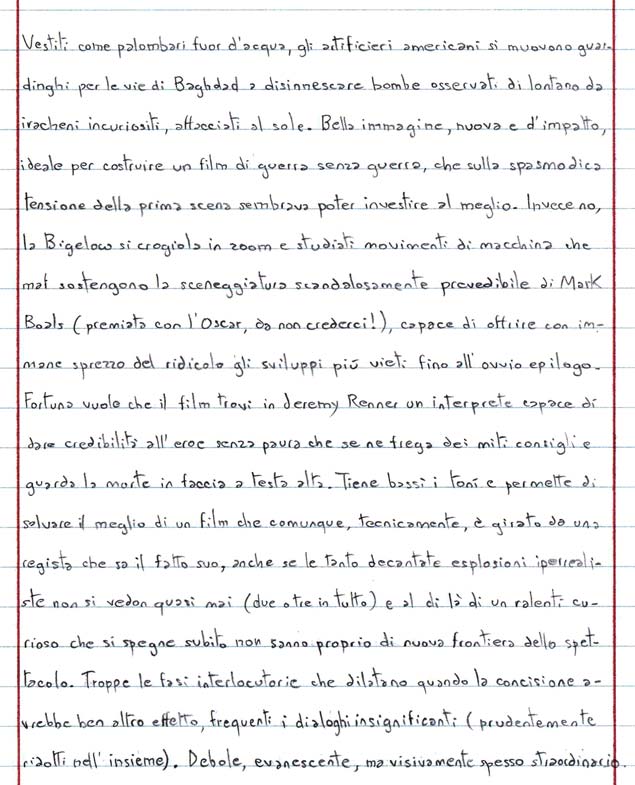 Vestiti come palombari fuor d'acqua, gli artificieri americani si muovono guar-
dinghi per le vie di Baghdad a disinnescare bombe osservati di lontano da
iracheni incuriositi, affacciati al sole. Bella immagine, nuova e d'impatto,
ideale per costruire un film di guerra senza guerra, che sulla spasmodica
tensione della prima scena sembrava poter investire al meglio. Invece no,
la Bigelow si crogiola in zoom e studiati movimenti di macchina che
mal sostengono la sceneggiatura scandalosamente prevedibile di Mark
Boals (premiata con l'Oscar, da non crederci!), capace di offrire con im-
mane sprezzo del ridicolo gli sviluppi più vieti fino all'ovvio epilogo.
Fortuna vuole che il film trovi in Jeremy Renner un interprete capace di
dare credibilità all'eroe senza paura che se ne frega dei miti consigli e
guarda la morte in faccia a testa alta. Tiene bassi i toni e permette di
salvare il meglio di un film che comunque, tecnicamente, è girato da una
regista che sa il fatto suo, anche se le tanto decantate esplosioni iperreali-
ste non si vedon quasi mai (due o tre in tutto) e al di là di un ralenti cu-
rioso che si spegne subito non sanno proprio di nuova frontiera dello spet-
tacolo. Troppe le fasi interlocutorie che dilatano quando la concisione a-
vrebbe ben altro effetto, frequenti i dialoghi insignificanti (prudentemente
ridotti nell'insieme). Debole, evanescente, ma visivamente spesso straordinario.